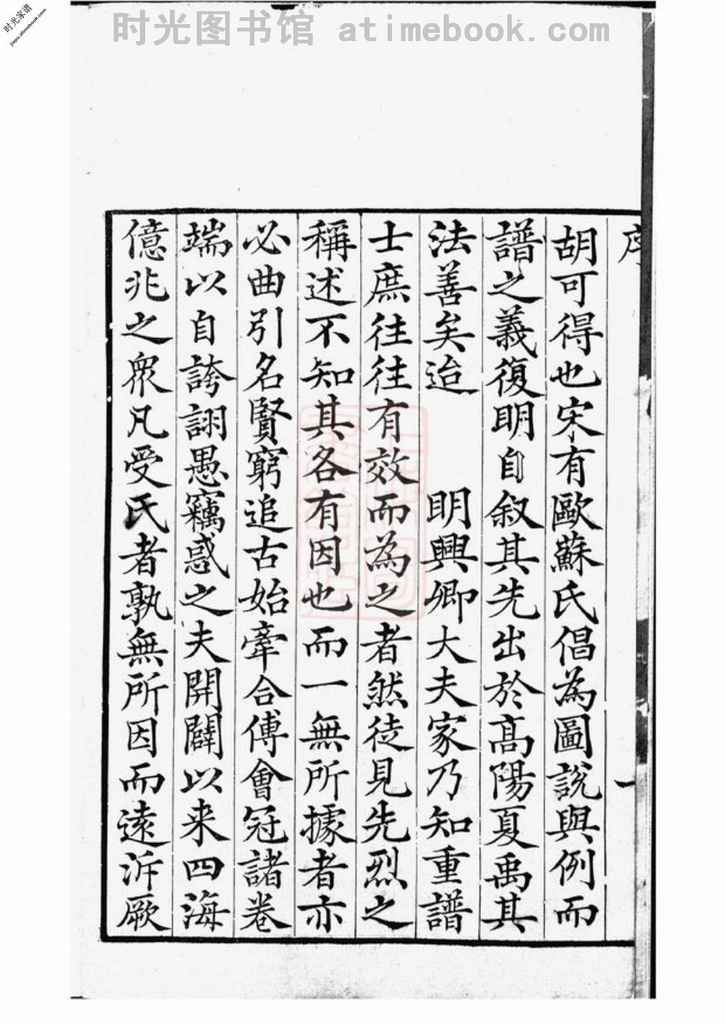 时光图书馆 atimebook.com
时光家谱
序
胡可得也宋有歐蘇氏倡為圖說與例而
譜之義復明自叙其先出於高陽夏禹其
法善矣迨 明興卿大夫家乃知重譜
士庶徃徃有效而為之者然徒見先烈之
稱述不知其各有因也而一無所據者亦
必曲引名賢窮追古始牽合傅會冠諸卷
端以自誇詡愚竊惑之夫開闢以来四海
億兆之衆凡受氏者孰無所因而遠泝厥
一